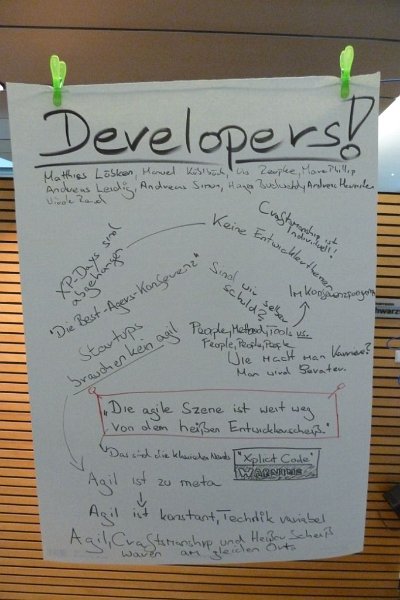 Developers!
Matthias Lübken, Manuel Küblböck, Uta Zempke, Marc Philipp
Andreas Leidig, Andreas Simon, Hagen Buchwald, Andrea Heinecke
Craftsmanship ist
individuell!
Keine Entwicklerthemen
XP-Days sind
abgehangen
im Konferenzprogramm
"Die Best-Agers-Konferenz"
Sind wir selber
schuld?
Startups
brauchen kein agil
People, Methods, Tools vs.
People, People, People
Wie macht man Karriere?
Man wird Berater.
"Die agile Szene ist weit weg
von dem heißen Entwicklerscheiß."
Das sind die klassischen Nerds
"Xplicit Code"
WARNING
Agil ist zu meta
Agil ist konstant, Technik variabel
Agil, Craftsmanship und Heißer Scheiß
waren am gleichen Ort